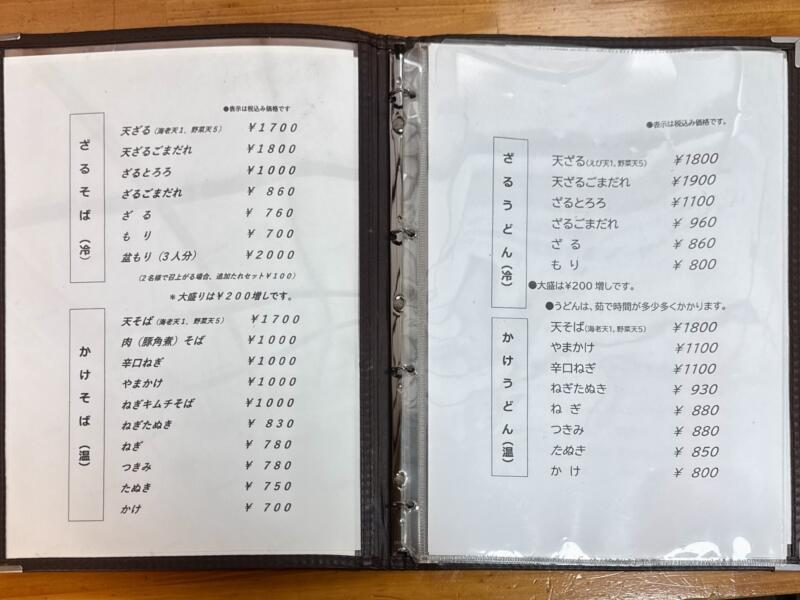 ●表示は税込み価格です
ざるそば（冷）
天ざる（海老天１、野菜天５） ￥１７００
天ざるごまだれ ￥１８００
ざるとろろ ￥１０００
ざるごまだれ ￥ ８６０
ざ る ￥ ７６０
も り ￥ ７００
盆もり（３人分） ￥２０００
（２名様で召上がる場合、追加たれセット￥１００）
＊大盛りは￥２００増しです。
かけそば（温）
天そば（海老天１、野菜天５） ￥１７００
肉（豚角煮）そば ￥１０００
辛口ねぎ ￥１０００
やまかけ ￥１０００
ねぎキムチそば ￥１０００
ねぎたぬき ￥ ８３０
ねぎ ￥ ７８０
つきみ ￥ ７８０
たぬき ￥ ７５０
かけ ￥ ７００
●表示は税込み価格です。
ざるうどん（冷）
天ざる(えび天1, 野菜天5) ￥1800
天ざるごまだれ ￥1900
ざるとろろ ￥1100
ざるごまだれ ￥ 960
ざ る ￥ 860
も り ￥ 800
●大盛は¥200 増しです。
●うどんは、茹で時間が多少多くかかります。
かけうどん（温）
天そば(海老天1, 野菜天5) ￥1800
やまかけ ￥1100
辛口ねぎ ￥1100
ねぎたぬき ￥ 930
ね ぎ ￥ 880
つきみ ￥ 880
たぬき ￥ 850
か け ￥ 800